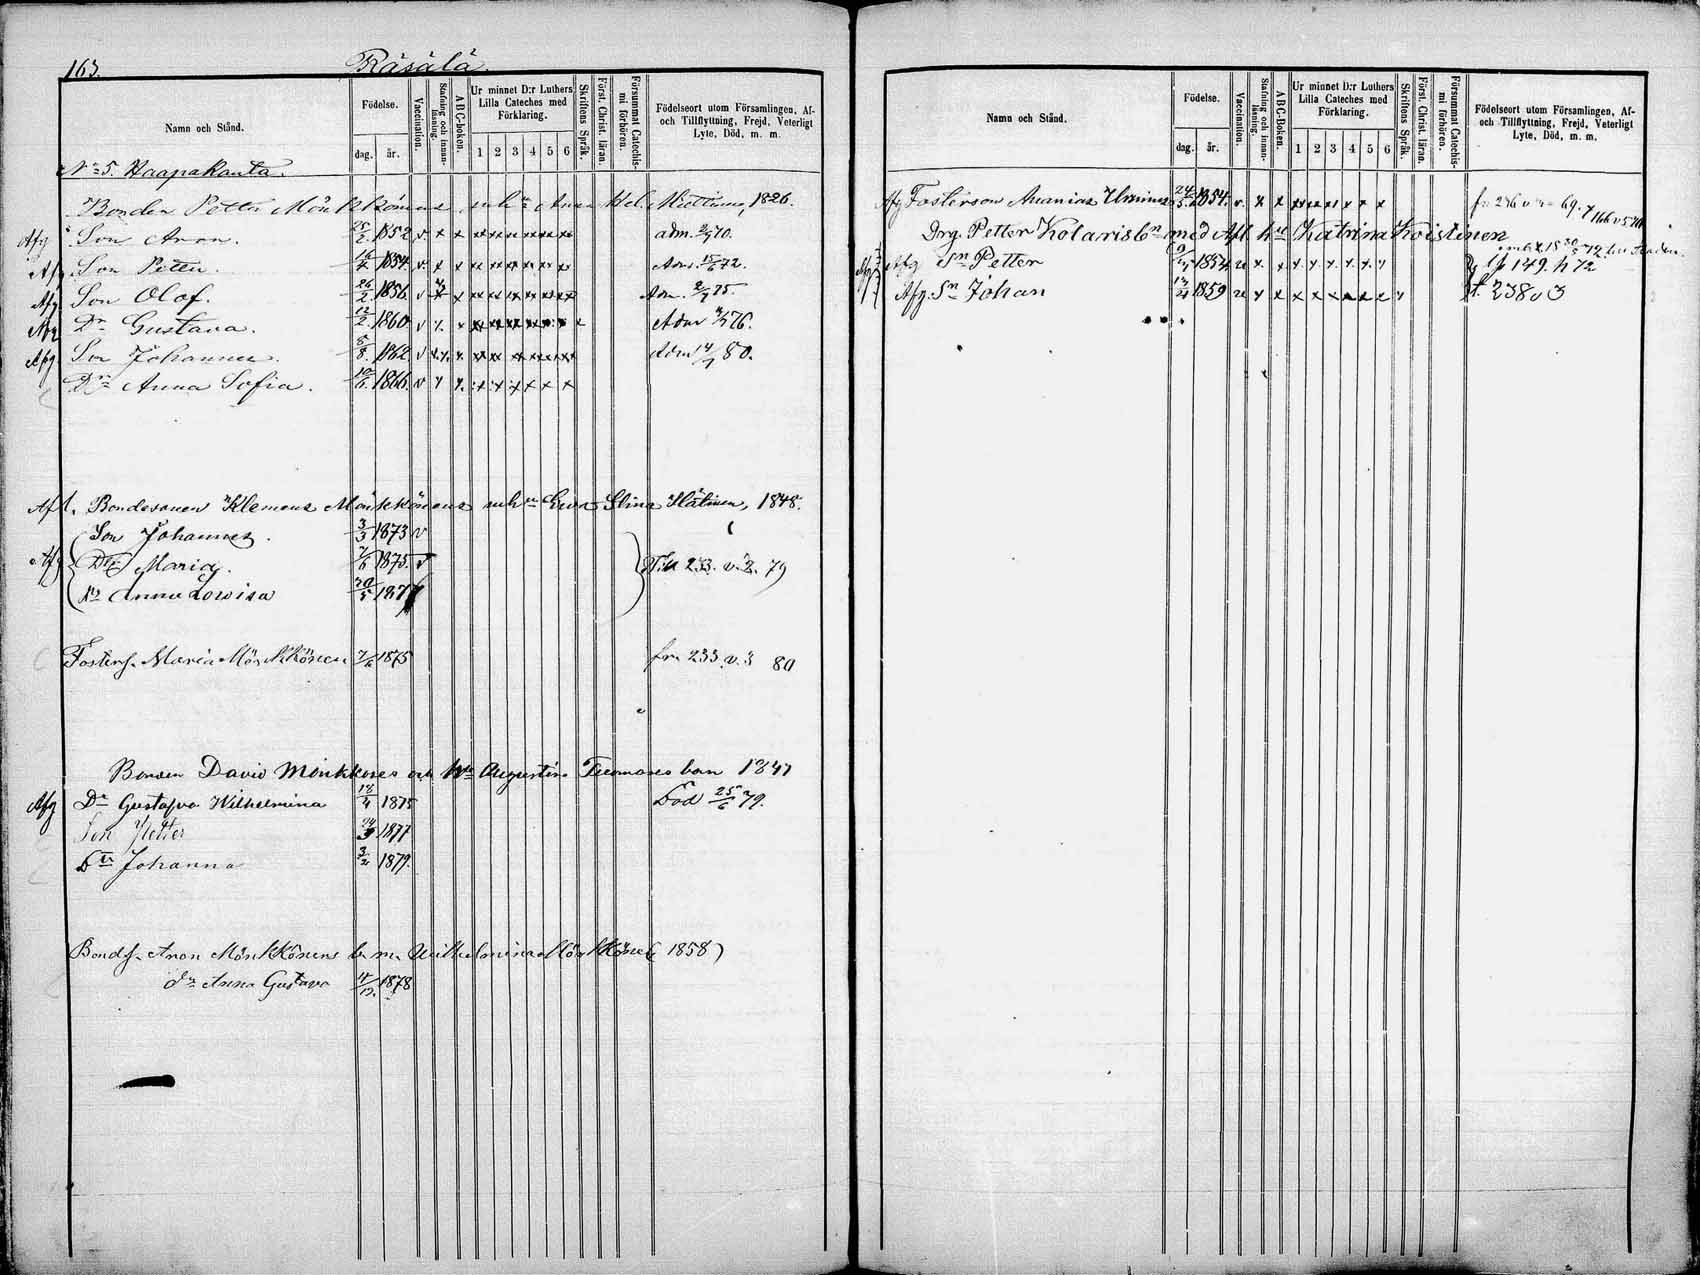 163.
Räsälä.
Namn och Stånd.
Födelse.
dag. år.
Vaccination.
Stafning och innanläsning.
ABC-boken.
Ur minnet D:r Luthers Lilla Cateches med Förklaring.
1 2 3 4 5 6
Skriftens Språk.
Först. Christ. läran.
Försummat Catechismi förhören.
Födelseort utom Församlingen, Af- och Tillflyttning, Frejd, Veterligt Lyte, Död, m. m.
No 5. Haapakanta.
Bonden Petter Mönkkönens mhu Anna Hel. Miettinen, 1826.
Afg Son Aron. 25/2. 1852 v. x x xx xx xx xx xx xx adm. 2/7 70.
Afg. Son Petter. 1854. v. x x Adm. 15/6 72.
Afg. Son Olof. 26/2 1856. v x x Adm. 2/7 75.
Afg Dr Gustava. 12/2. 1860 v x x Adm 76.
Afg. Son Johannes. 5/8. 1862. v x x Adm 14/7 80.
Dr Anna Sofia. 10/6. 1866. v x x x x x x x x
Aft. Bondesonen Klemens Mönkkönens mhu Eva Stina Hätinen, 1848.
Son Johannes. 3/3 1873 v
Afg Dtr Maria. 7/6 1875. v Till 233. v. 3. 79
Dr Anna Lovisa 20/5 1877
Fosterf. Maria Mönkkönen 7/6 1875 fr. 233. v. 3 80
Bonden David Mönkkönes och Hu Augustina Tuomones barn 1847
Afg Dr Gustafva Wilhelmina 18/4 1875 Död 25/6 79.
Son Petter 24/3 1877
Dtr Johanna 3/2 1879.
Bondes. Aron Mönkkönens b. m. Wilhelmina Mönkkönen (1858)
dr Anna Gustava 1878
Namn och Stånd.
Födelse.
dag. år.
Vaccination.
Stafning och innanläsning.
ABC-Boken.
Ur minnet D:r Luthers Lilla Cateches med Förklaring.
1 2 3 4 5 6
Skriftens Språk.
Först. Christ. läran.
Försummat Catechismi förhören.
Födelseort utom Församlingen, Af- och Tillflyttning, Frejd, Veterligt Lyte, Död, m. m.
Afg Fosterson Ananias 24/5 1854. v. x x 69.
Drg. Petter Kolaris bn med Afl. hu Katrina Koistinen
Afg Sn Petter 1854 x x x x x x x x 149. 72.
Afg. Sn Johan 1859 x x x x x x x x t. 238 v 3